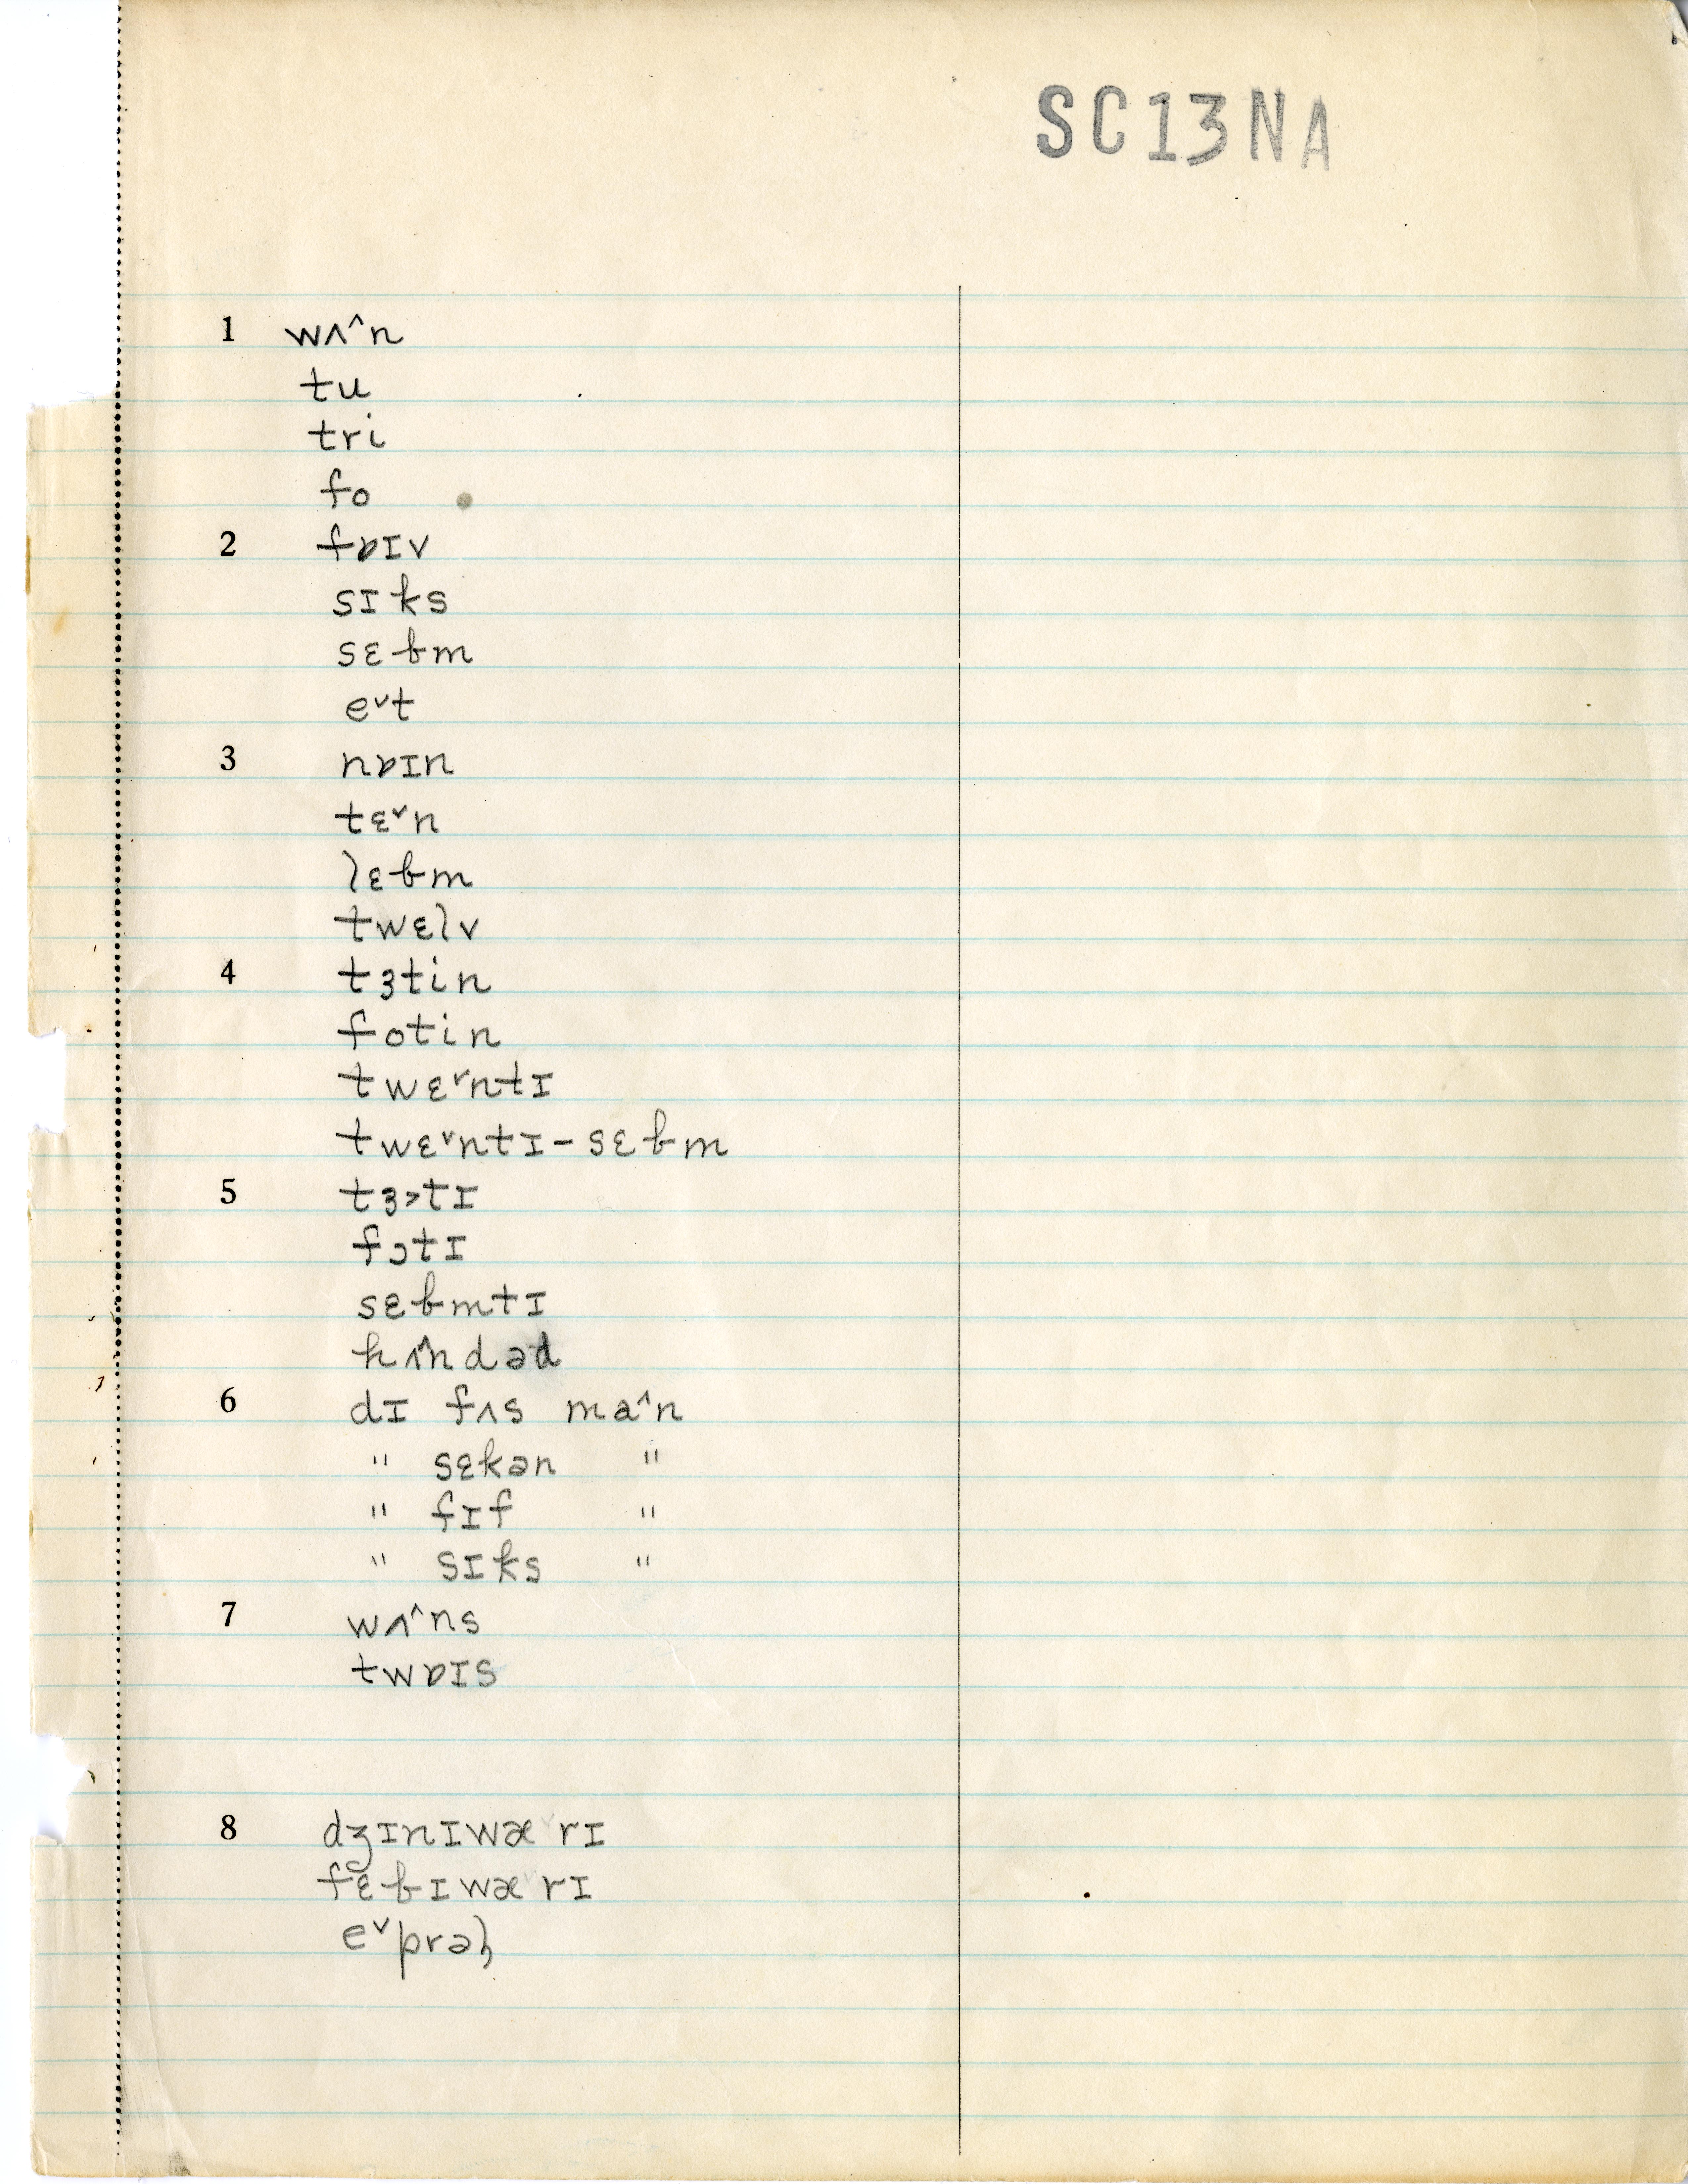 SC13NA
1 wʌ^n
tu
tri
fo
2 fɒɪv
sɪks
sɛbm
e˅t
3 nɒɪn
tɛ˅n
lɛbm
twɛlv
4 tɜtin
fotin
twɛ˅ntɪ
twɛ˅ntɪ-sɛbm
5 tɜ˃tɪ
fɔtɪ
sɛbmtɪ
hʌ^ndəd
6 dɪ fʌs ma^n
" sɛkən "
" fɪf "
" sɪks "
7 wʌ^ns
twɒɪs
8 dʒɪnɪwæ˅rɪ
fɛbɪwæ˅rɪ
e˅prəl̩